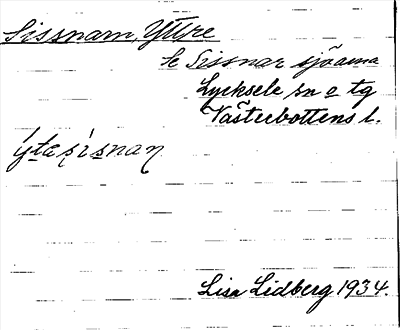 Sissnam, Yttre
Se Sissnar sjöarna
Lycksele sn o tg
Västerbottens l.
Lisa Lidberg 1934.